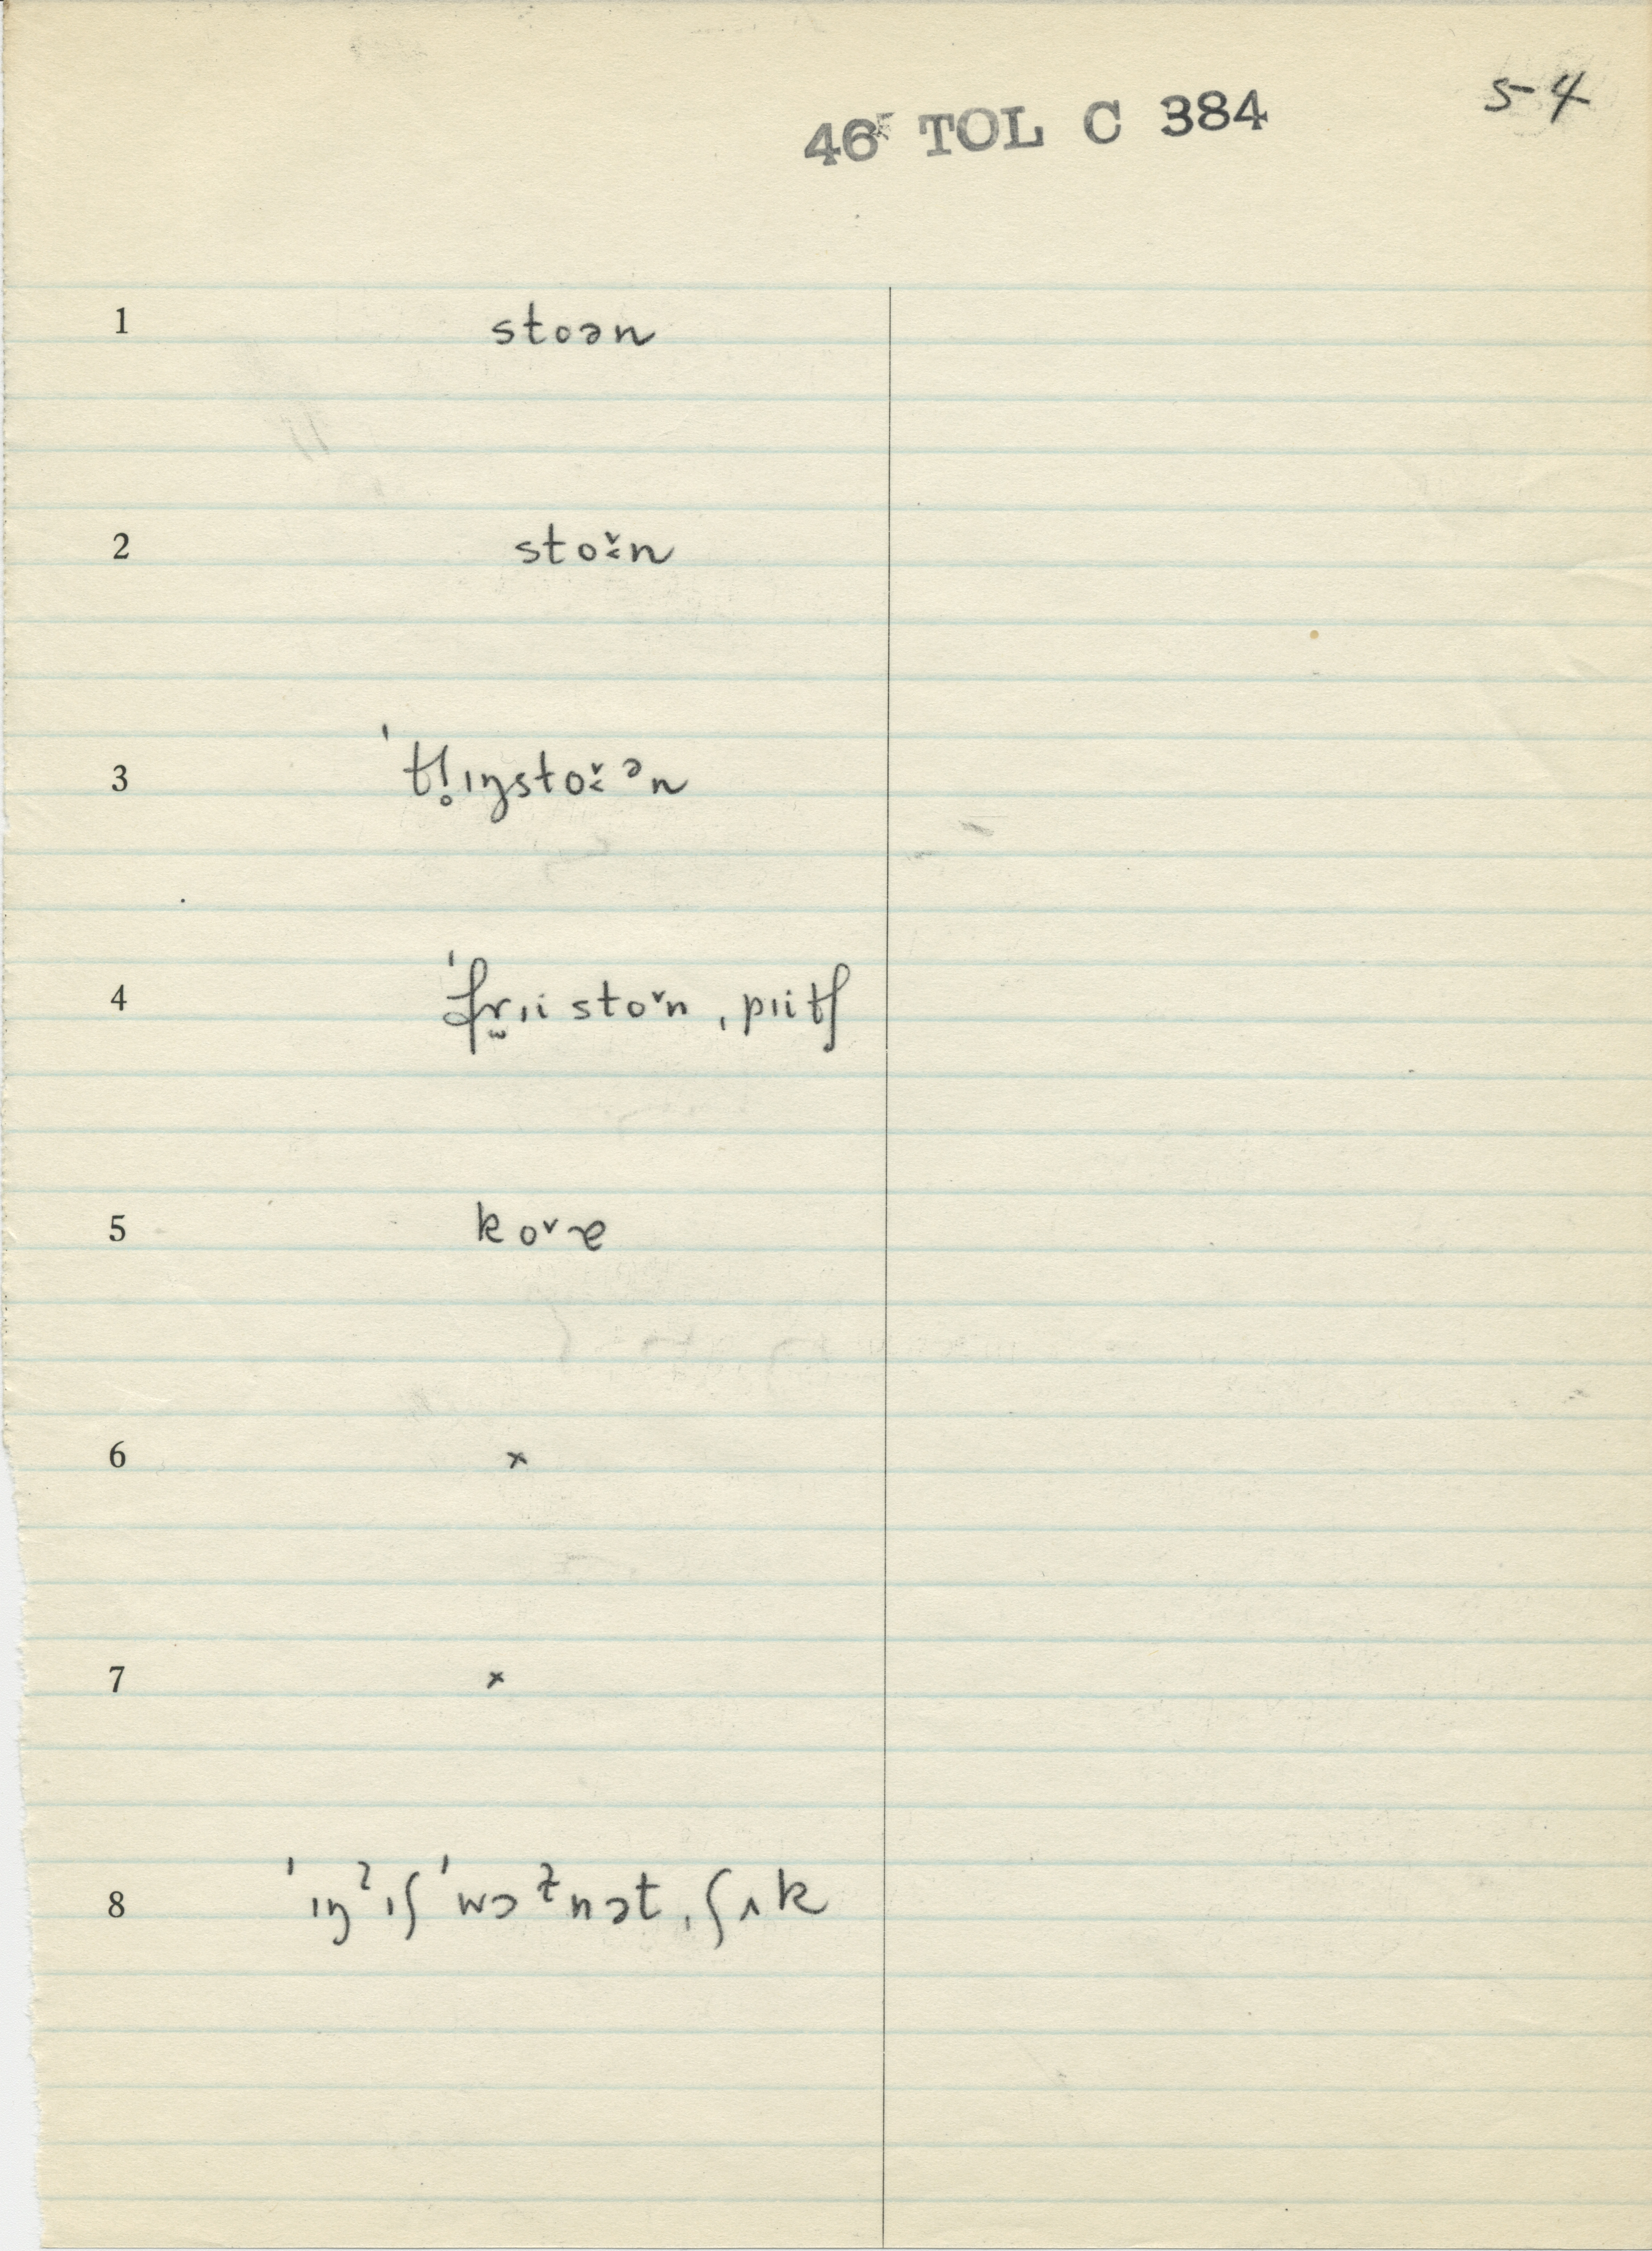 46 TOL C 384
5-4
1 stoən
2 sto˅̱n
3 ˈtl̥ɪŋsto˅̱ᵊn
4 ˈfr̫ɪistoˇn ˌpɪitʃ
5 koˇɚ
6 ×
7 ×
8 ˈɪŋˀɪʃ ˈwɔɫnət ˌʃʌk